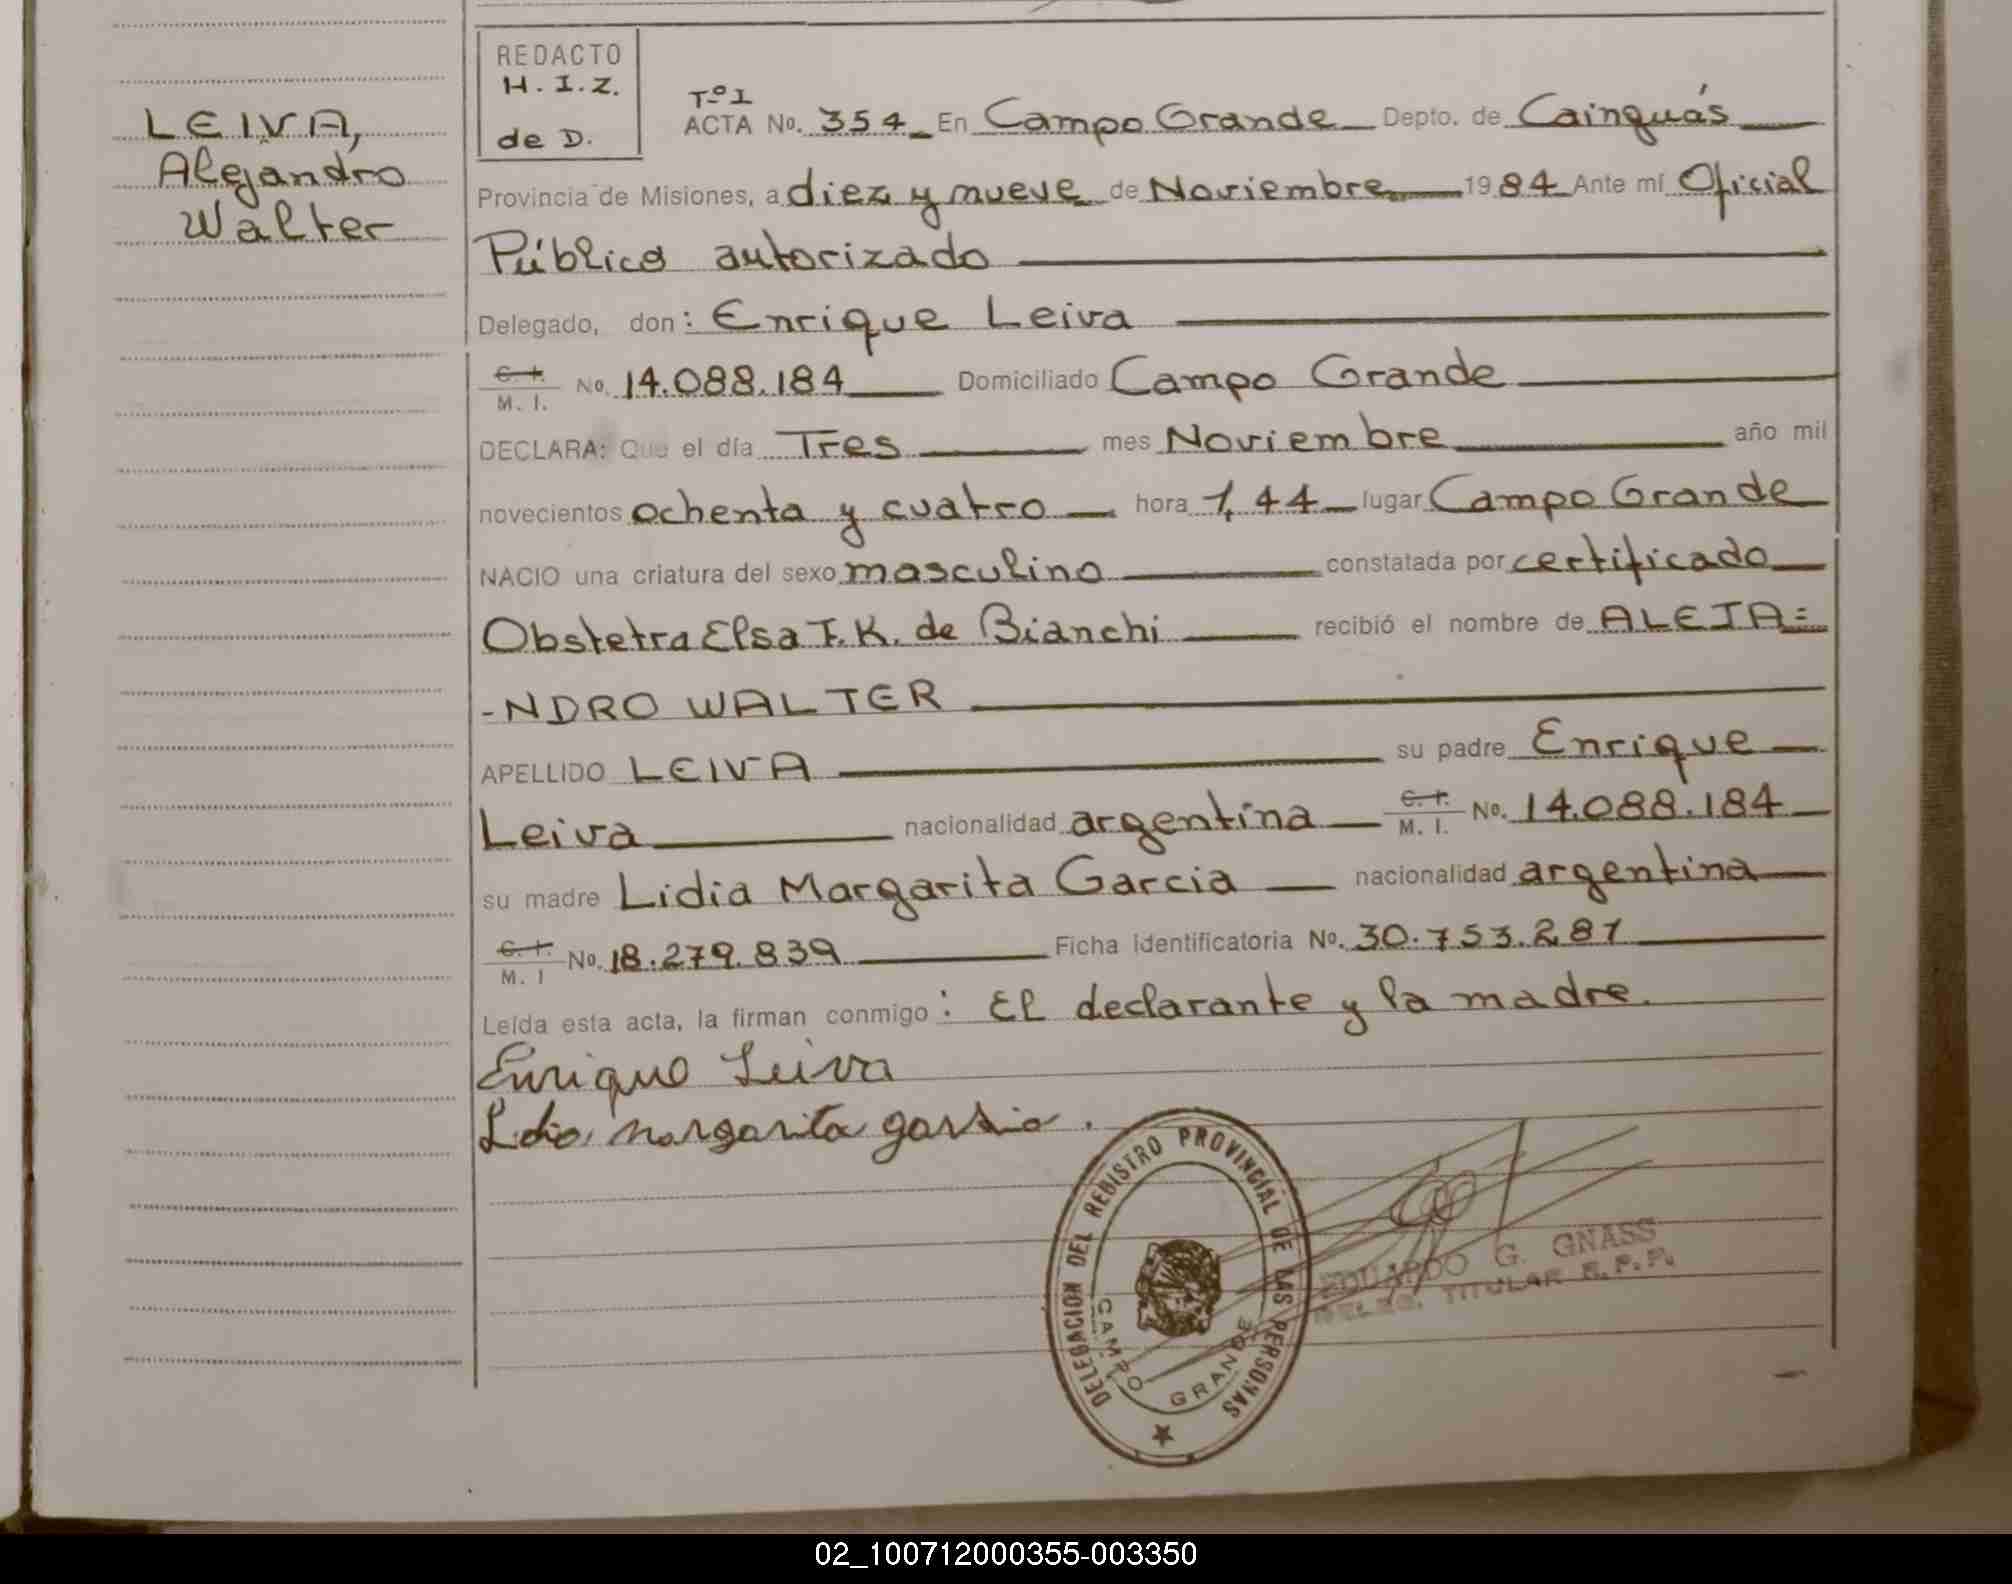 LEIVA,
Alejandro
Walter
REDACTO
H.I.Z.
de D.
Tº I
ACTA No. 354 En Campo Grande Depto. de Cainguás
Provincia de Misiones, a diez y nueve de Noviembre 1984 Ante mí Oficial
Público autorizado
Delegado, don: Enrique Leiva
C.I.
M. I. No. 14.088.184 Domiciliado Campo Grande
DECLARA: Que el día Tres mes Noviembre año mil
novecientos ochenta y cuatro hora 1,44 lugar Campo Grande
NACIO una criatura del sexo masculino constatada por certificado
Obstetra Elsa F. K. de Bianchi recibió el nombre de ALEJA=
-NDRO WALTER
APELLIDO LEIVA su padre Enrique
Leiva nacionalidad argentina C.I. M. I. No. 14.088.184
su madre Lidia Margarita Garcia nacionalidad argentina
C.I.
M. I No. 18.279.839 Ficha identificatoria No. 30.753.287
Leída esta acta, la firman conmigo: El declarante y la madre.
Enrique Leiva
Margarita
DELEGACION DEL REGISTRO PROVINCIAL DE LAS PERSONAS
CAMPO GRANDE
EDUARDO G. GNASS
DELEG. TITULAR R.P.P.
02_100712000355-003350